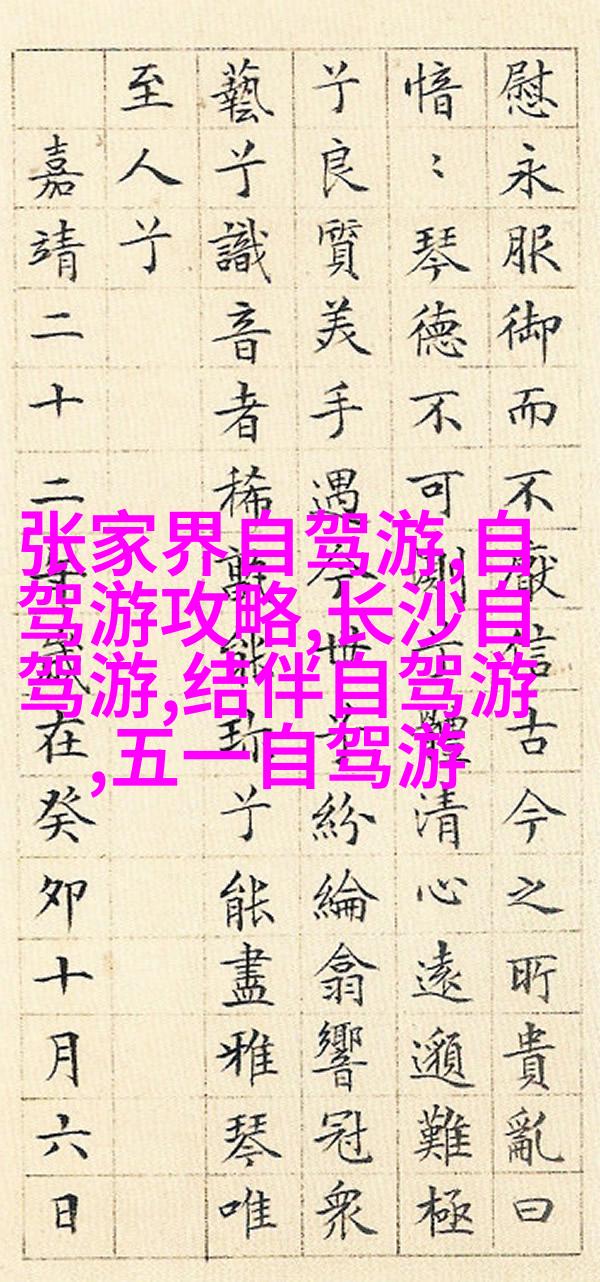 慰永服御而不厭信古今之所貴亂曰
愔〻琴德不可測兮體清心遠邈難極
兮良質美手遇今世兮紛綸翕響冠衆
藝兮識音者稀孰能珎兮能盡雅琴唯
至人兮
嘉靖二十二年歲在癸卯十月六日
张家界自驾游,自
驾游攻略,长沙自
驾游,结伴自驾游
,五一自驾游